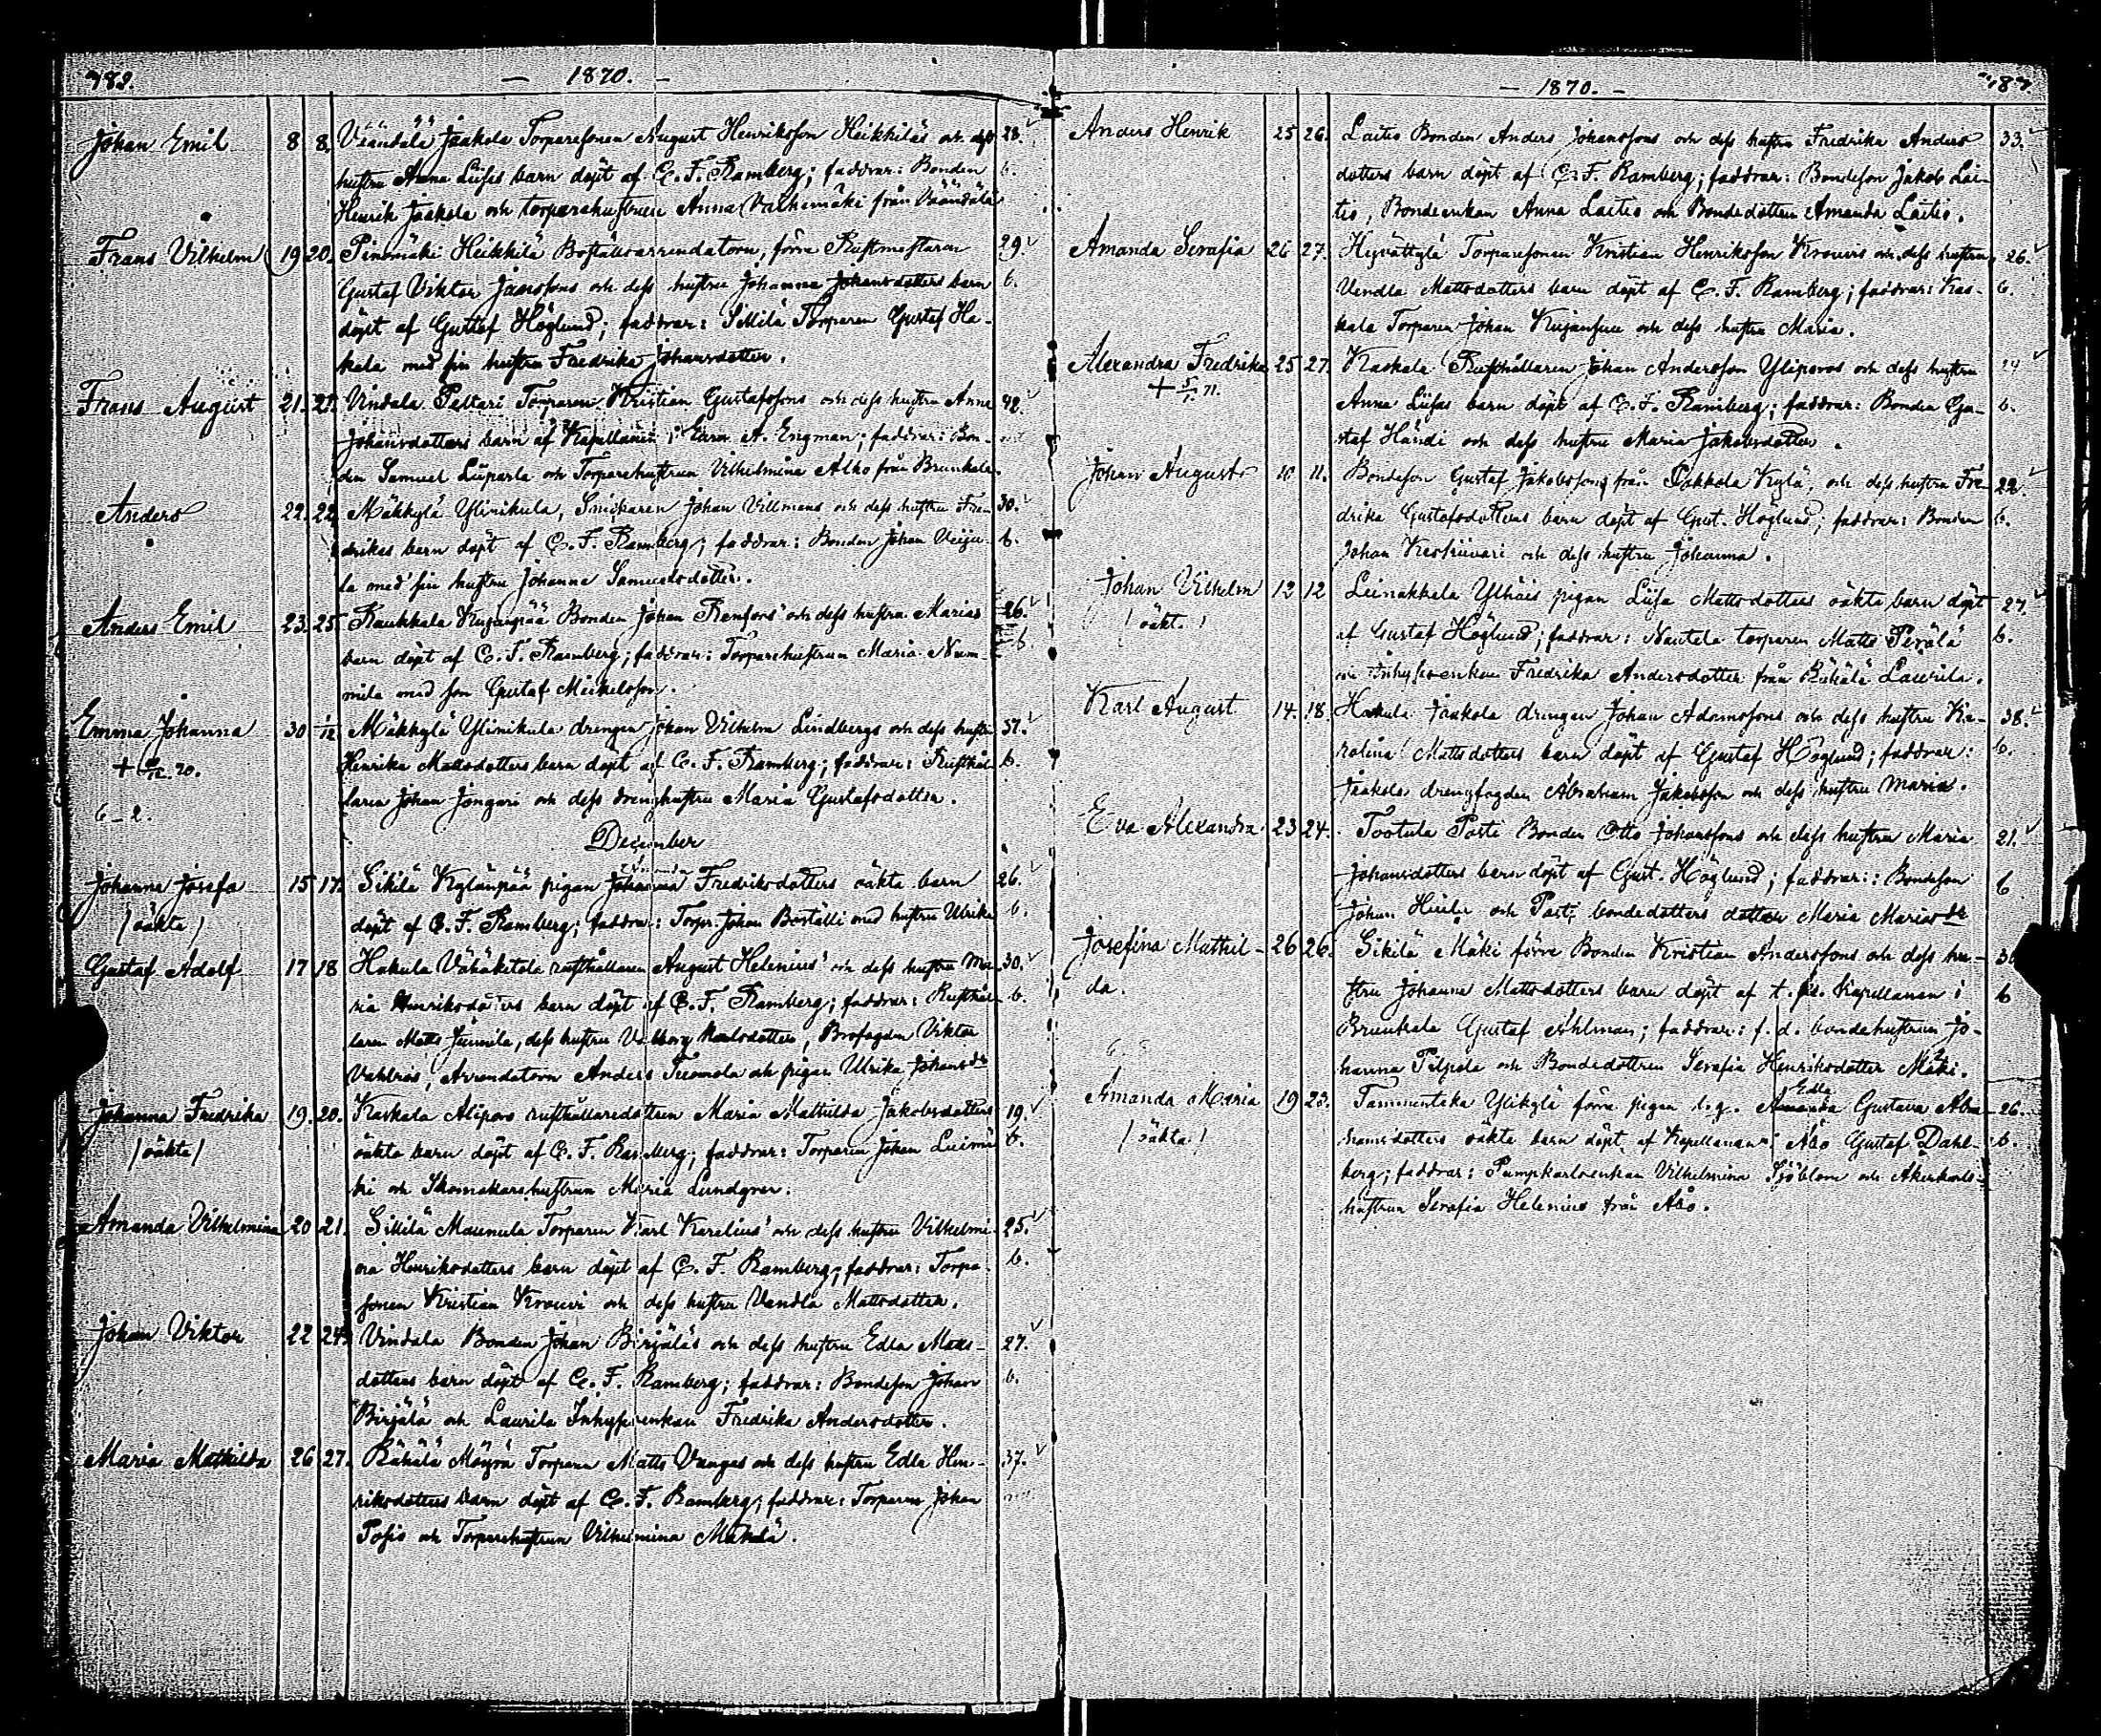 982.
— 1870. —
Johan Emil 8 8. Väändälä Jaakola Torparesonen August Henriksson Heikkiläs och dess 28.
hustru Anna Liisas barn döpt af C. F. Ramberg; faddrar: Bonden 6.
Henrik Jaakola och torparehustrun Anna Valkamäki från Väändälä
Frans Vilhelm 19 20. Pinomäki Heikkilä Boställsarrendatorn, förre Rustmästaren 29.
Gustaf Viktor Janssons och dess hustru Johanna Johansdotters barn 6.
döpt af Gustaf Höglund; faddrar: Sikilä Torparen Gustaf Ha-
kala med sin hustru Fredrika Johansdotter.
Frans August 21. 21. Vindala Peltari Torparen Kristian Gustafssons och dess hustru Anna 42.
Johansdotters barn af Kapellanen i A. Engman; faddrar: Bon-
den Samuel Liuparla och Torparehustrun Vilhelmina Alho från Brunkala.
Anders 22. 22. Mäkkylä Ylinikula, Snickaren Johan Villmans och dess hustru Fre- 30.
drikas barn döpt af C. F. Ramberg; faddrar: Bonden Johan Veiju- 6.
la med sin hustru Johanna Samuelsdotter.
Anders Emil 23. 25. Raukkala Kujanpää Bonden Johan Renfors' och dess hustru Marias 26.
barn döpt af C. F. Ramberg; faddrar: Torparehustrun Maria Num- 6.
mila med son Gustaf Mickelsson.
Emma Johanna 30 1/12 Mäkkylä Ylinikula drengen Johan Vilhelm Lindbergs och dess hustru 37.
+ /12. 70. Henrika Mattsdotters barn döpt af C. F. Ramberg; faddrar: Rusthål- 6.
laren Johan Jongari och dess drenghustru Maria Gustafsdotter.
6–2.
December
Johanna Josefa 15 17. Sikilä Kylänpää pigan Johanna Fredriksdotters oäkta barn 26.
/oäkta/ döpt af C. F. Ramberg; faddrar: Torpr. Johan Boställi med hustru Ulrika 6.
Gustaf Adolf 17 18 Hakula Vähäketola rusthållaren August Helenius' och dess hustru Ma- 30.
ria Henriksdotters barn döpt af C. F. Ramberg; faddrar: Rusthål- 6.
laren Matts Junnila, dess hustru Valborg Karlsdotter, Brofogden Viktor
Vahlros, Arrendatorn Anders Tuomola och pigan Ulrika Johansdr
Johanna Fredrika 19. 20. Kaskala Alipovo rusthållaredottern Maria Mathilda Jakobsdotters 19.
/oäkta/ oäkta barn döpt af C. F. Ramberg; faddrar: Torparen Johan Luimu- 6.
ki och Skomakarehustrun Maria Lundgren.
Amanda Vilhelmina 20 21. Sikilä Maunula Torparen Karl Karelius' och dess hustru Vilhelmi- 25.
na Henriksdotters barn döpt af C. F. Ramberg; faddrar: Torpa- 6.
sonen Kristian Krouvi och dess hustru Vendla Mattsdotter.
Johan Viktor 22 24. Vindala Bonden Johan Birjäläs och dess hustru Edla Matts- 27.
dotters barn döpt af C. F. Ramberg; faddrar: Bondeson Johan 6.
Birjälä och Laurila Inhysesenkan Fredrika Andersdotter.
Maria Mathilda 26 27. Rähälä Möyrä Torparen Matts Vangas och dess hustru Edla Hen- 37.
riksdotters barn döpt af C. F. Ramberg; faddrar: Torparen Johan
Posio och Torparehustrun Vilhelmina Mäkelä.
— 1870. —
Anders Henrik 25 26. Laitis Bonden Anders Johanssons och dess hustru Fredrika Anders 33.
dotters barn döpt af C. F. Ramberg; faddrar: Bondeson Jakob Lai-
tis, Bondeenkan Anna Laitis och Bondedottern Amanda Laitis.
Amanda Serafia 26 27. Hyvättylä Torparesonen Kristian Henriksson Krouvis och dess hustru 26.
Vendla Mattsdotters barn döpt af C. F. Ramberg; faddrar: Kas- 6.
kala Torparen Johan Kujansuu och dess hustru Maria.
Alexandra Fredrika 25 27. Kaskala Rusthållaren Johan Andersson Ylipovos och dess hustru
+ 5/1. 71. Anna Liisas barn döpt af C. F. Ramberg; faddrar: Bonden Gu- 6.
staf Händi och dess hustru Maria Jakobsdotter.
Johan August 10 11. Bondeson Gustaf Jakobssons från Pakkola Kylä, och dess hustru Fre- 22.
drika Gustafsdotters barn döpt af Gust. Höglund; faddrar: Bonden 6.
Johan Keskiivari och dess hustru Johanna.
Johan Vilhelm 12 12 Leinakkala Ylhäis pigan Liisa Mattsdotters oäkta barn döpt 27.
/oäkt./ af Gustaf Höglund; faddrar: Nautela torparen Matts Perälä 6.
Inhysesenkan Fredrika Andersdotter från Rähälä Laurila.
Karl August 14. 18. Hakula Jaakola drengen Johan Adamssons och dess hustru Ka- 38.
rolina Mattsdotters barn döpt af Gustaf Höglund; faddrar: 6.
Jaakola drengfogden Abraham Jakobsson och dess hustru Maria.
Eva Alexandra 23 24. Tootula Pasti Bonden Otto Johanssons och dess hustru Maria 21.
Johansdotters barn döpt af Gust. Höglund; faddrar: Bondeson 6
Johan och Pasti bondedotters dotter Maria Mariasdr
Josefina Mathil- 26 26. Sikilä Mäki förre Bonden Kristian Anderssons och dess hu-
da. stru Johanna Mattsdotters barn döpt af t. f. Kapellanen i 6
Brunkala Gustaf Ahlman; faddrar: f. d. bondehustrun Jo-
hanna Pilpola och Bondedottren Serafia Henriksdotter Mäki.
Edla
Amanda Maria 19 23. Tammentaka Ylikylä förra pigan Amanda Gustava Abra- 26.
/oäkta/ hamsdotters oäkta barn döpt af Kapellanen i Åbo Gustaf Dahl- 6.
berg; faddrar: Pumpkarlsenkan Vilhelmina Sjöblom och Åkerkarls-
hustrun Serafia Helenius från Åbo.